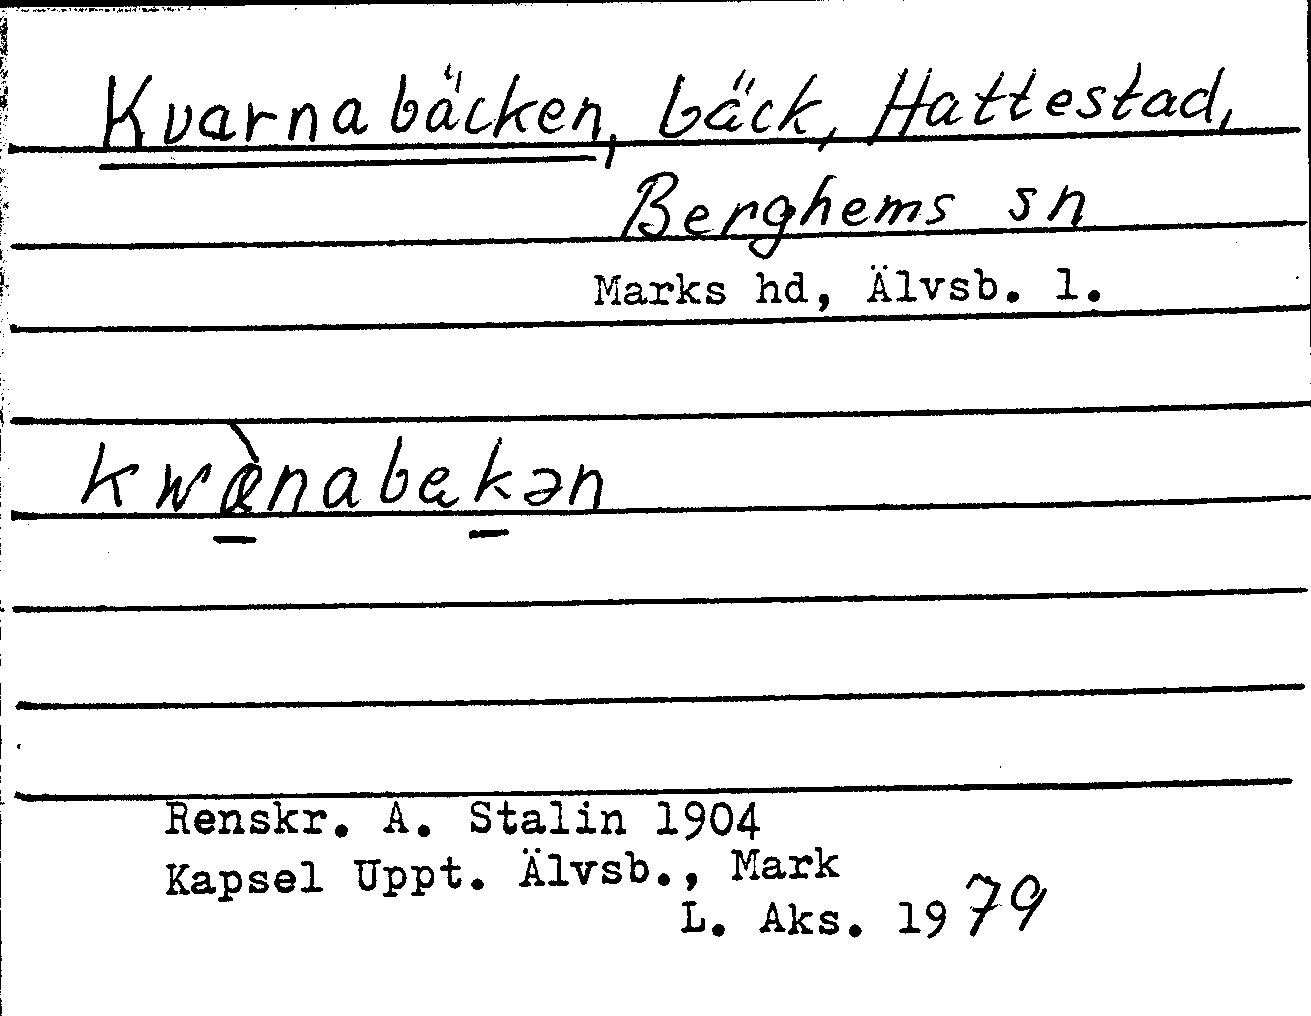 Kvarnabäcken, bäck, Hattestad,
Berghems sn
Marks hd, Älvsb. l.
kwæ̀nabækən
Renskr. A. Stalin 1904
Kapsel Uppt. Älvsb., Mark
L. Aks. 1979